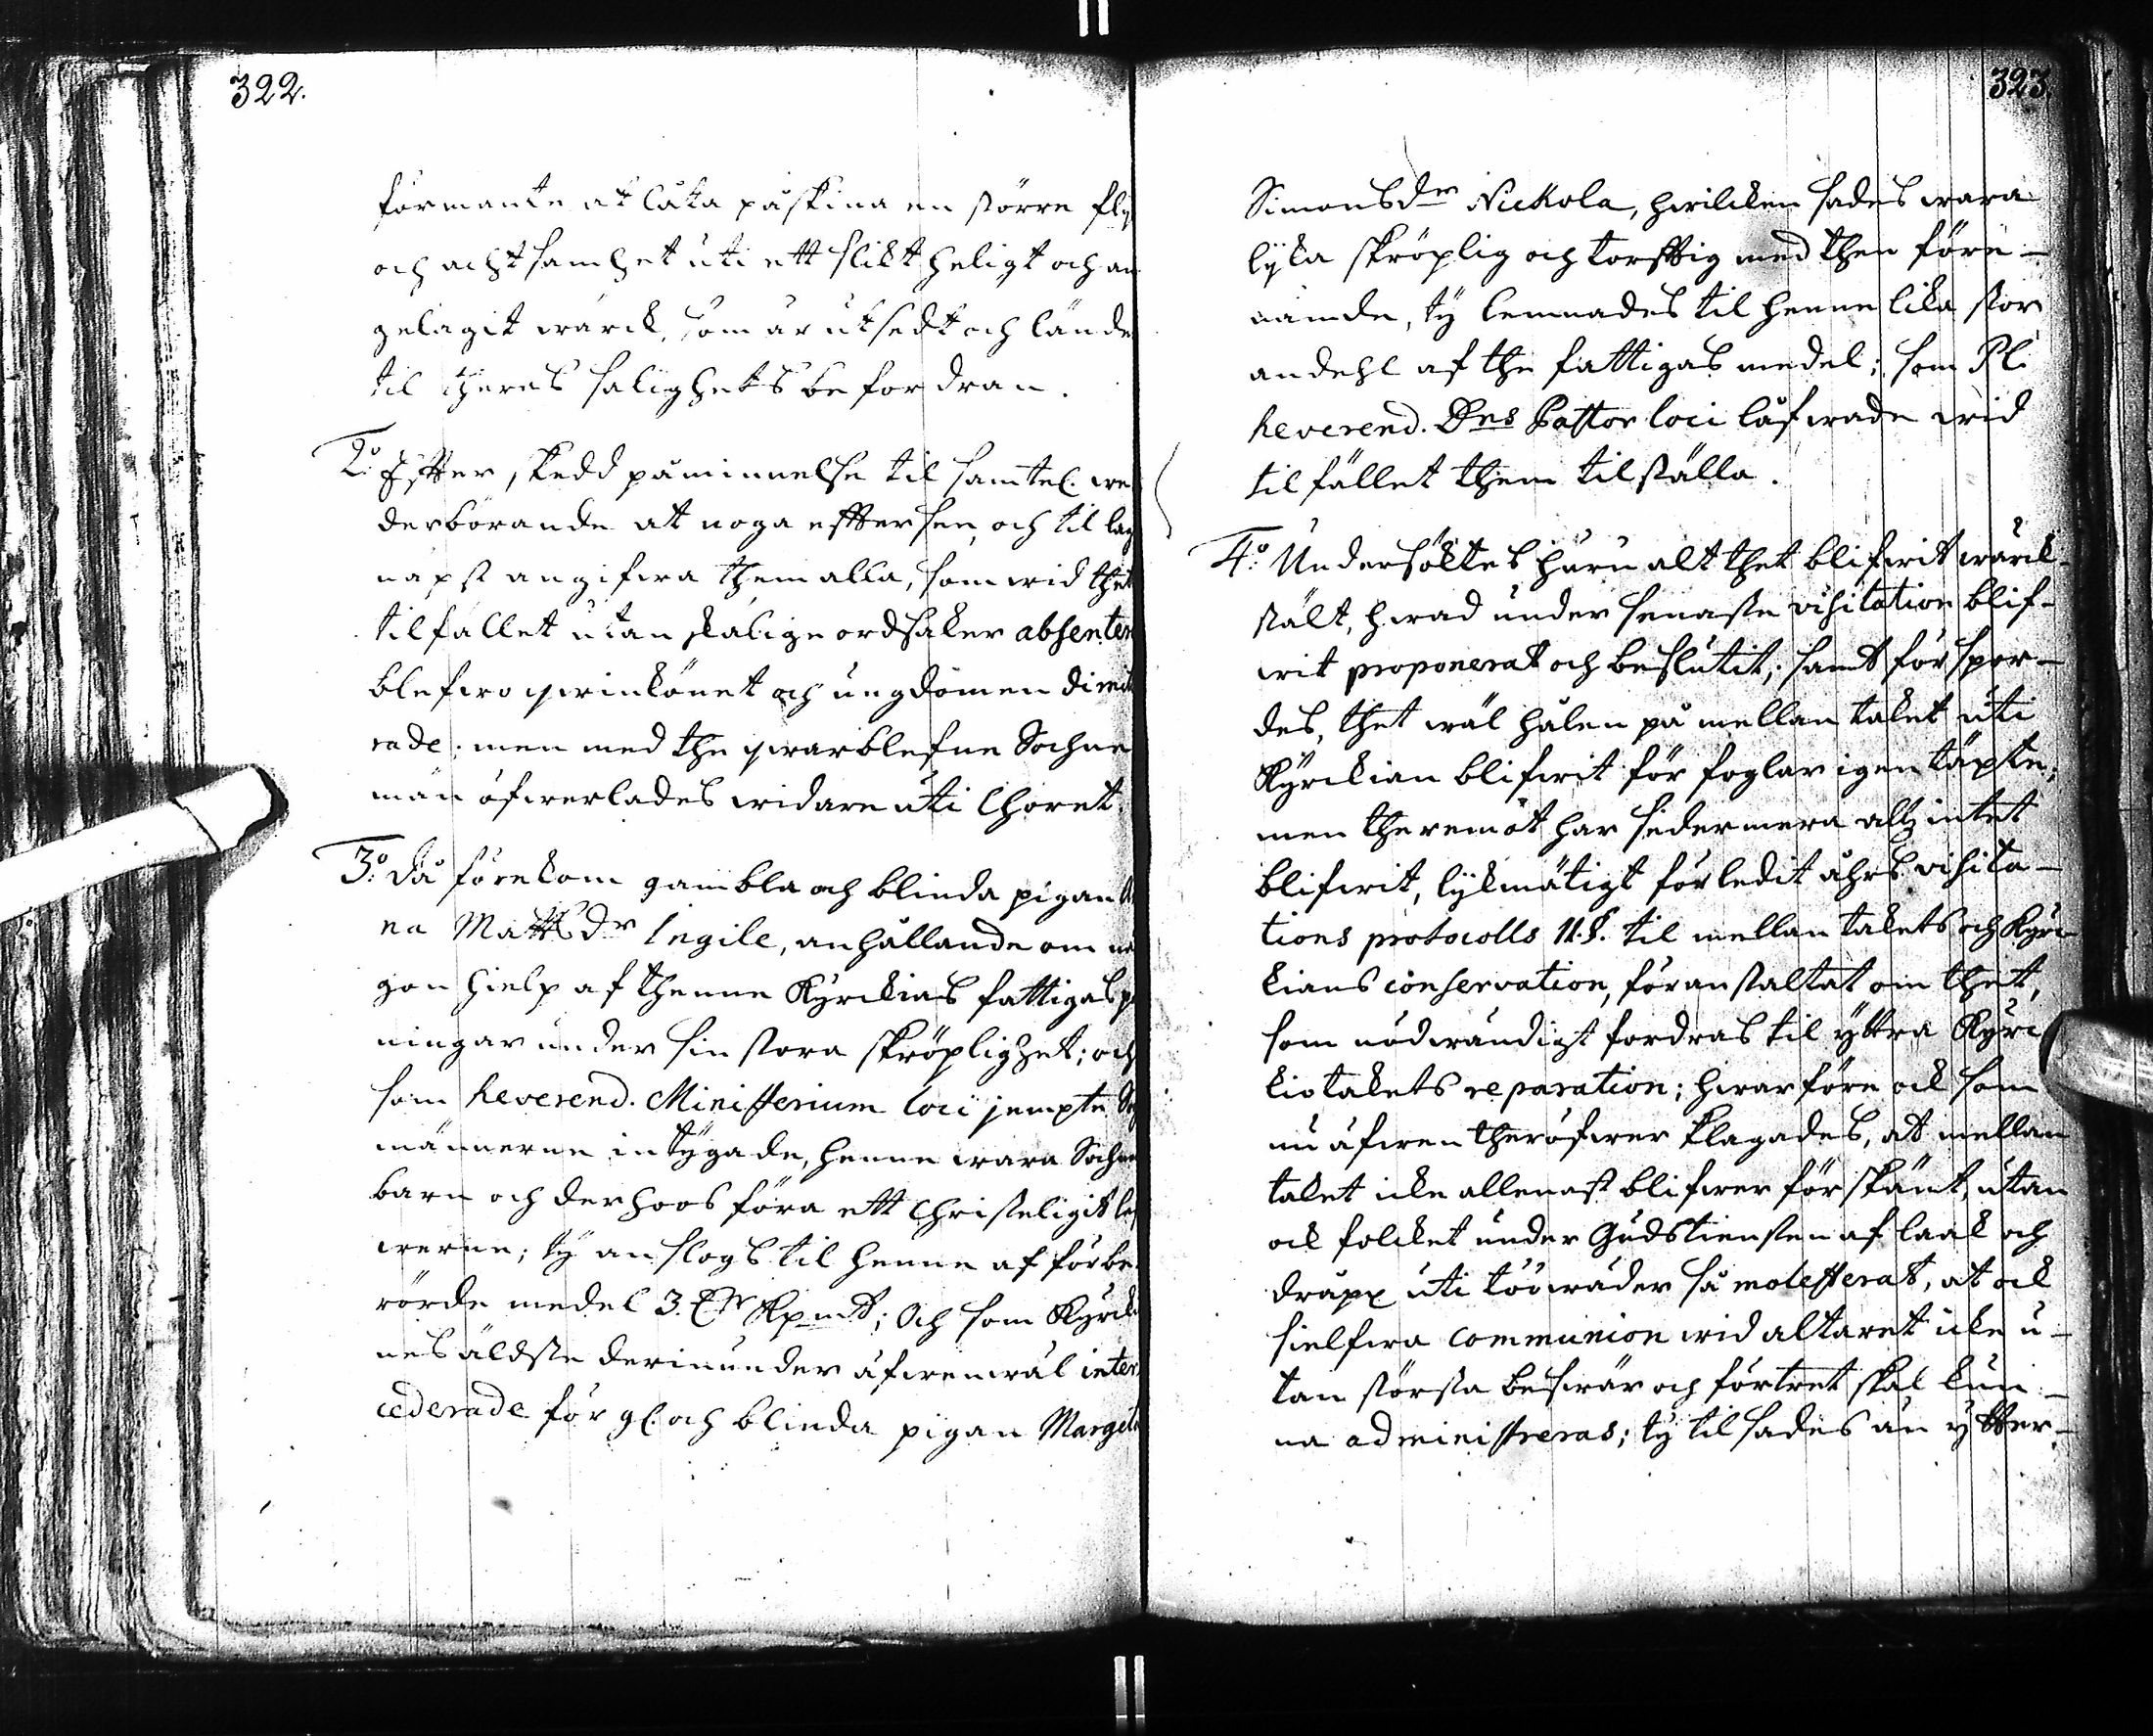 322.
förmante at låta påskina en större fly
och achtsamhet uti ett slikt heligt och an
gelägit wärck, som är utsedt och lände
til theras salighets befordran.
2:o Effter skedd påminnelse til samtel. we
derbörande at noga effterse, och til lag
napst angifwa them alla, som wid thet
tilfället utan skälige ordsaker absenter
blefwo qwinkönet och ungdomen dimit
rade; men med the qwarblefne Sochne
män öfwerlades widare uti Choret.
3:o Då förekom gambla och blinda pigan
na Matts Dr Ingile, anhållande om nå
gon hielp af thenne Kyrckias fattigas pe
ningar under sin stora skröplighet; och
som Reverend. Ministerium loci jempte
männerne intygade, henne wara Sochne
barn och derhoos föra ett Christeligit lef
werne; ty anslogs til henne af förbe
rörde medel 3. Dr Kpmt; Och som Kyrck
nes äldste derinunder äfwenwäl inter
cederade för gl. och blinda pigan Margeta
323.
Simons dr Nickola, hwilcken sades wara
lyka skröplig och torfftig med then före-
nämde, ty lemnades til henne lika stor
andehl af the fattigas medel; som Pl.
Reverend. Dns Pastor loci låfwade wid
tilfället them tilställa.
4:o Undersöktes huru alt thet blifwit wärck-
stält, hwad under senaste visitation blif-
wit proponerat och beslutit; samt förspor-
des, thet wäl hålen på mellan taket uti
Kyrckian blifwit för foglar igen täpte;
men theremot har sedermera allz intet
blifwit, lykmätigt förledit åhrs visita-
tions protocolls 11.§. til mellan takets och Kyrc-
kians conservation, föranstaltat om thet,
som nödwändigt fordras til yttra Kyrc
kiotakets reparation; hwarföre ock som
nu äfwen theröfwer klagades, at mellan
taket icke allenast blifwer förskämt, utan
ock folcket under Gudstiensten af laak och
dråpp uti töoväder så molesterat, at ock
sielfwa communion wid altaret icke u-
tan största beswär och förtret skal kun-
na administreras; ty tilsades än ytter-